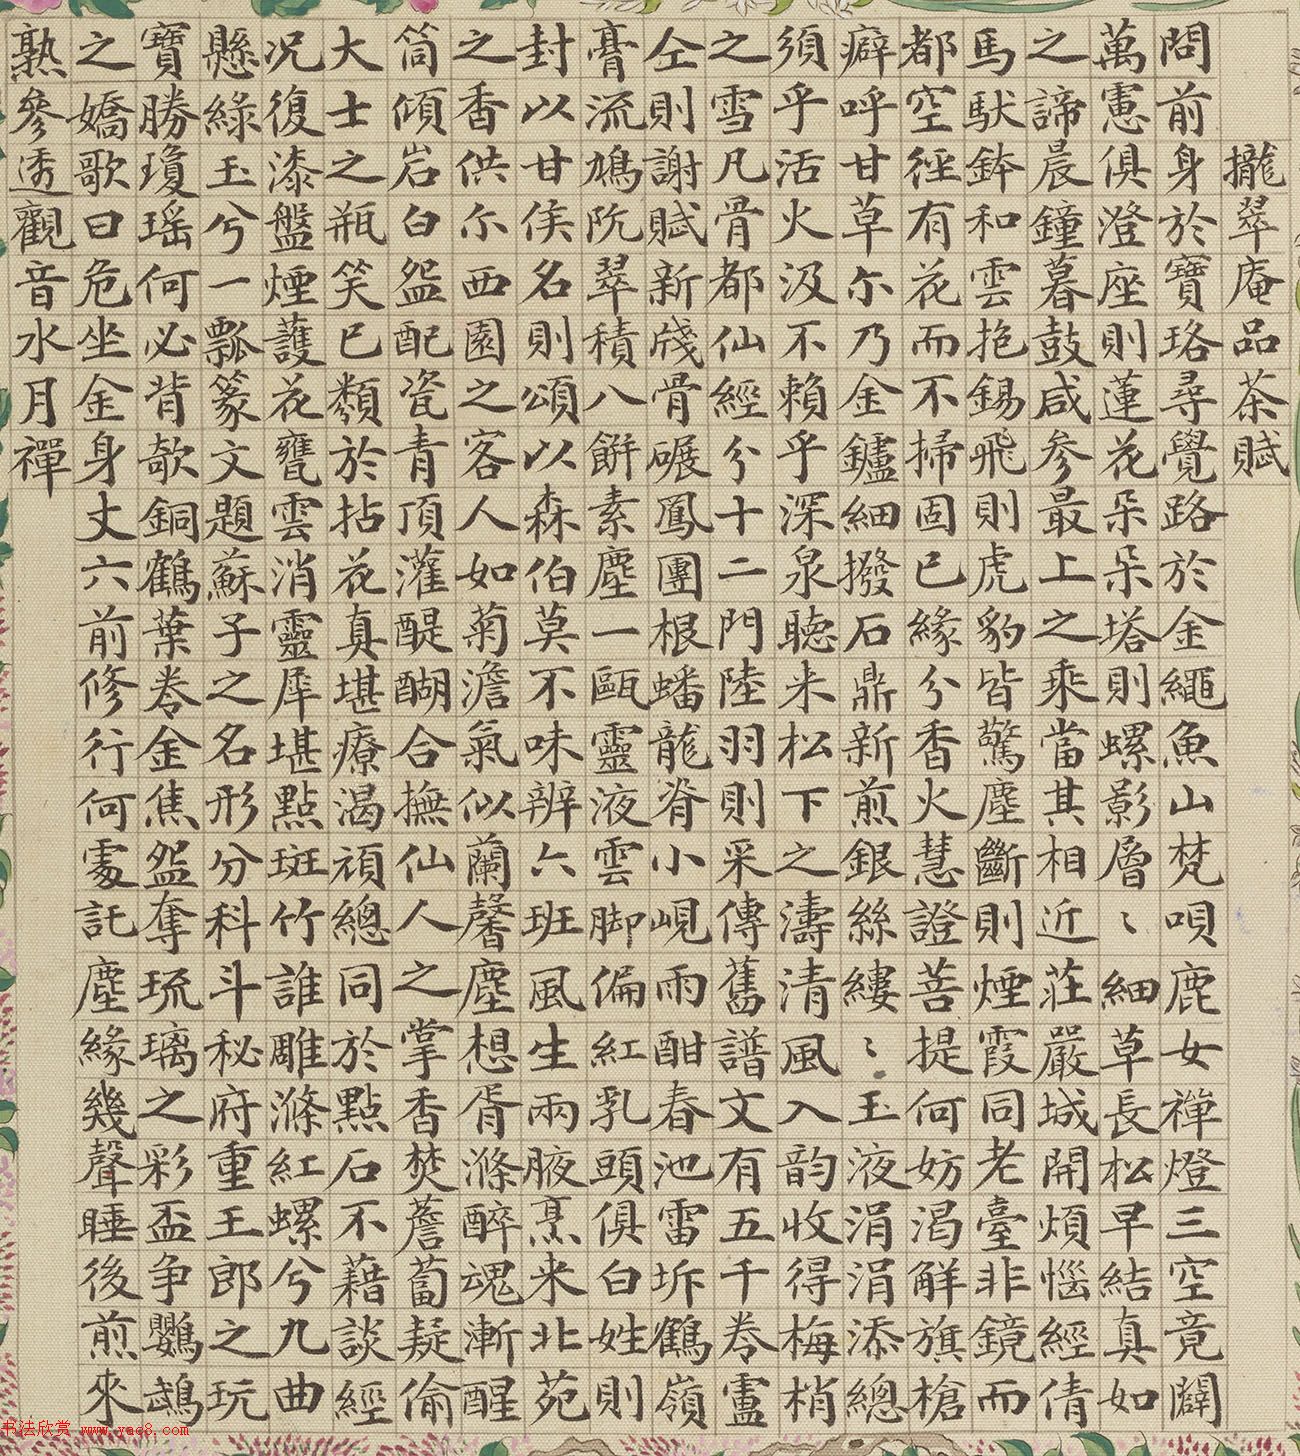 攏翠庵品茶賦
問前身於寶珞尋覺路於金繩魚山梵唄鹿女禪燈三空竟闢
萬慮俱澄座則蓮花朵朵塔則螺影層〻細草長松早結真如
之諦晨鐘暮鼓咸參最上之乘當其相近莊嚴城開煩惱經倩
馬馱鉢和雲抱錫飛則虎豹皆驚塵斷則煙霞同老臺非鏡而
都空徑有花而不掃固已緣分香火慧證菩提何妨渴解旗槍
癖呼甘草尓乃金鑪細撥石鼎新煎銀絲縷〻玉液涓涓添總
須乎活火汲不賴乎深泉聽来松下之濤清風入韵收得梅梢
之雪凡骨都仙經分十二門陸羽則采傳舊譜文有五千卷盧
仝則謝賦新牋骨碾鳳團根蟠龍脊小峴雨酣春池雷坼鶴嶺
膏流鳩阬翠積八餅素塵一甌靈液雲脚偏紅乳頭俱白姓則
封以甘侯名則頌以森伯莫不味辨六班風生兩腋烹来北苑
之香供尓西園之客人如菊澹氣似蘭馨塵想胥滌醉魂漸醒
筒傾岩白盌配瓷青頂灌醍醐合撫仙人之掌香焚薝蔔疑偷
大士之瓶笑已類於拈花真堪療渴頑總同於點石不藉談經
况復漆盤煙護花甕雲消靈犀堪點斑竹誰雕滌紅螺兮九曲
懸綠玉兮一瓢篆文題蘇子之名形分科斗秘府重王郎之玩
寶勝瓊瑶何必背欹銅鶴葉卷金焦盌奪琉璃之彩盃争鸚鵡
之嬌歌曰危坐金身丈六前修行何處託塵緣幾聲睡後煎來
熟參透觀音水月禪
书法欣赏 www.yac8.com